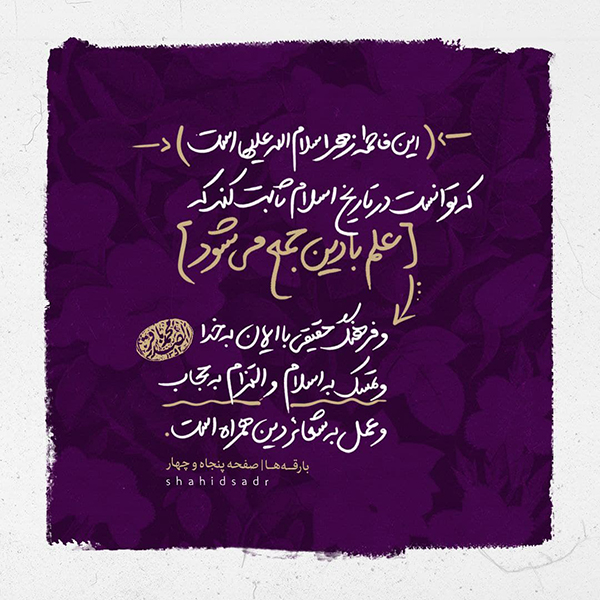 (این فاطمه زهرا سلام الله علیها است)
که توانست در تاریخ اسلام ثابت کند که
[علم با دین جمع می‌شود]
و فرهنگ حقیقی با ایمان به خدا
و تمسک به اسلام و التزام به حجاب
و عمل به شعائر دین همراه است.
بارقه‌ها | صفحه پنجاه و چهار
shahidsadr